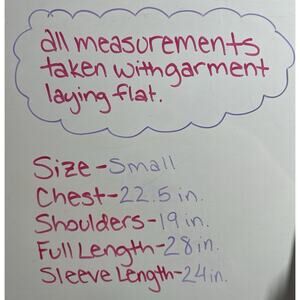 all measurements
taken with garment
laying flat.
Size-Small
Chest-22.5in.
Shoulders-19in.
Full Length-28in.
Sleeve Length-24in.